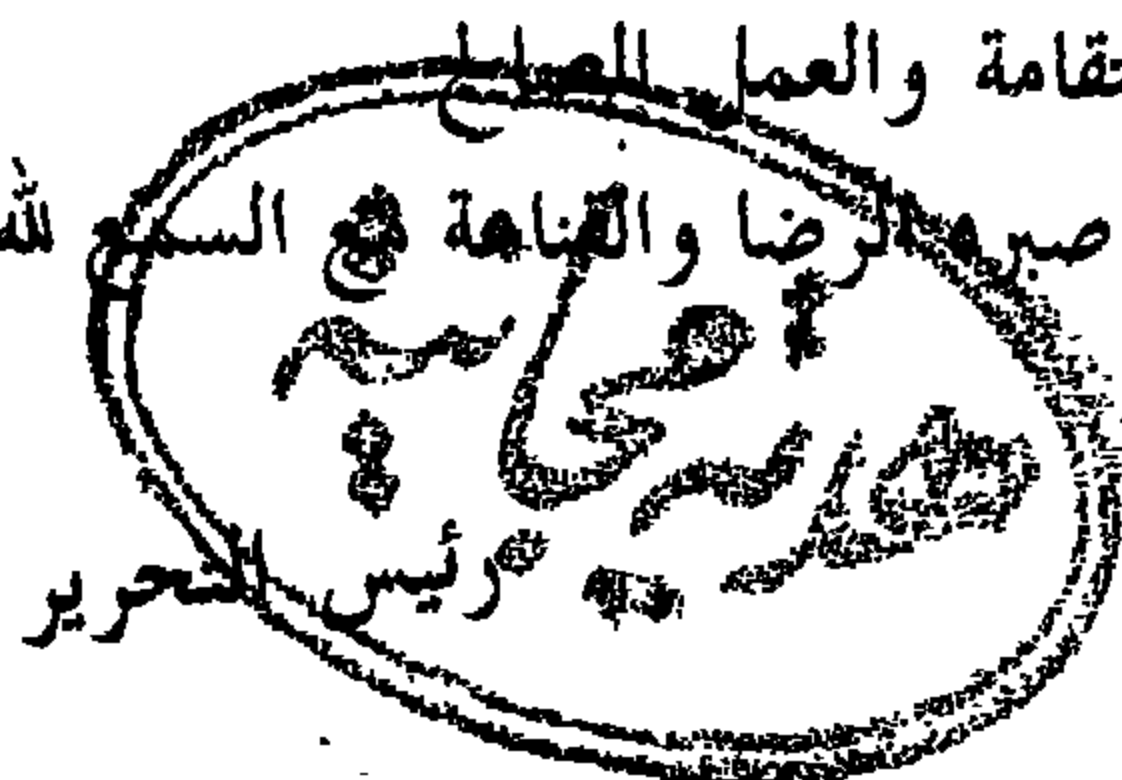 تقامة والعمل الصالح
صبره الرضا والقناعة مع السمع لله
رئيس التحرير